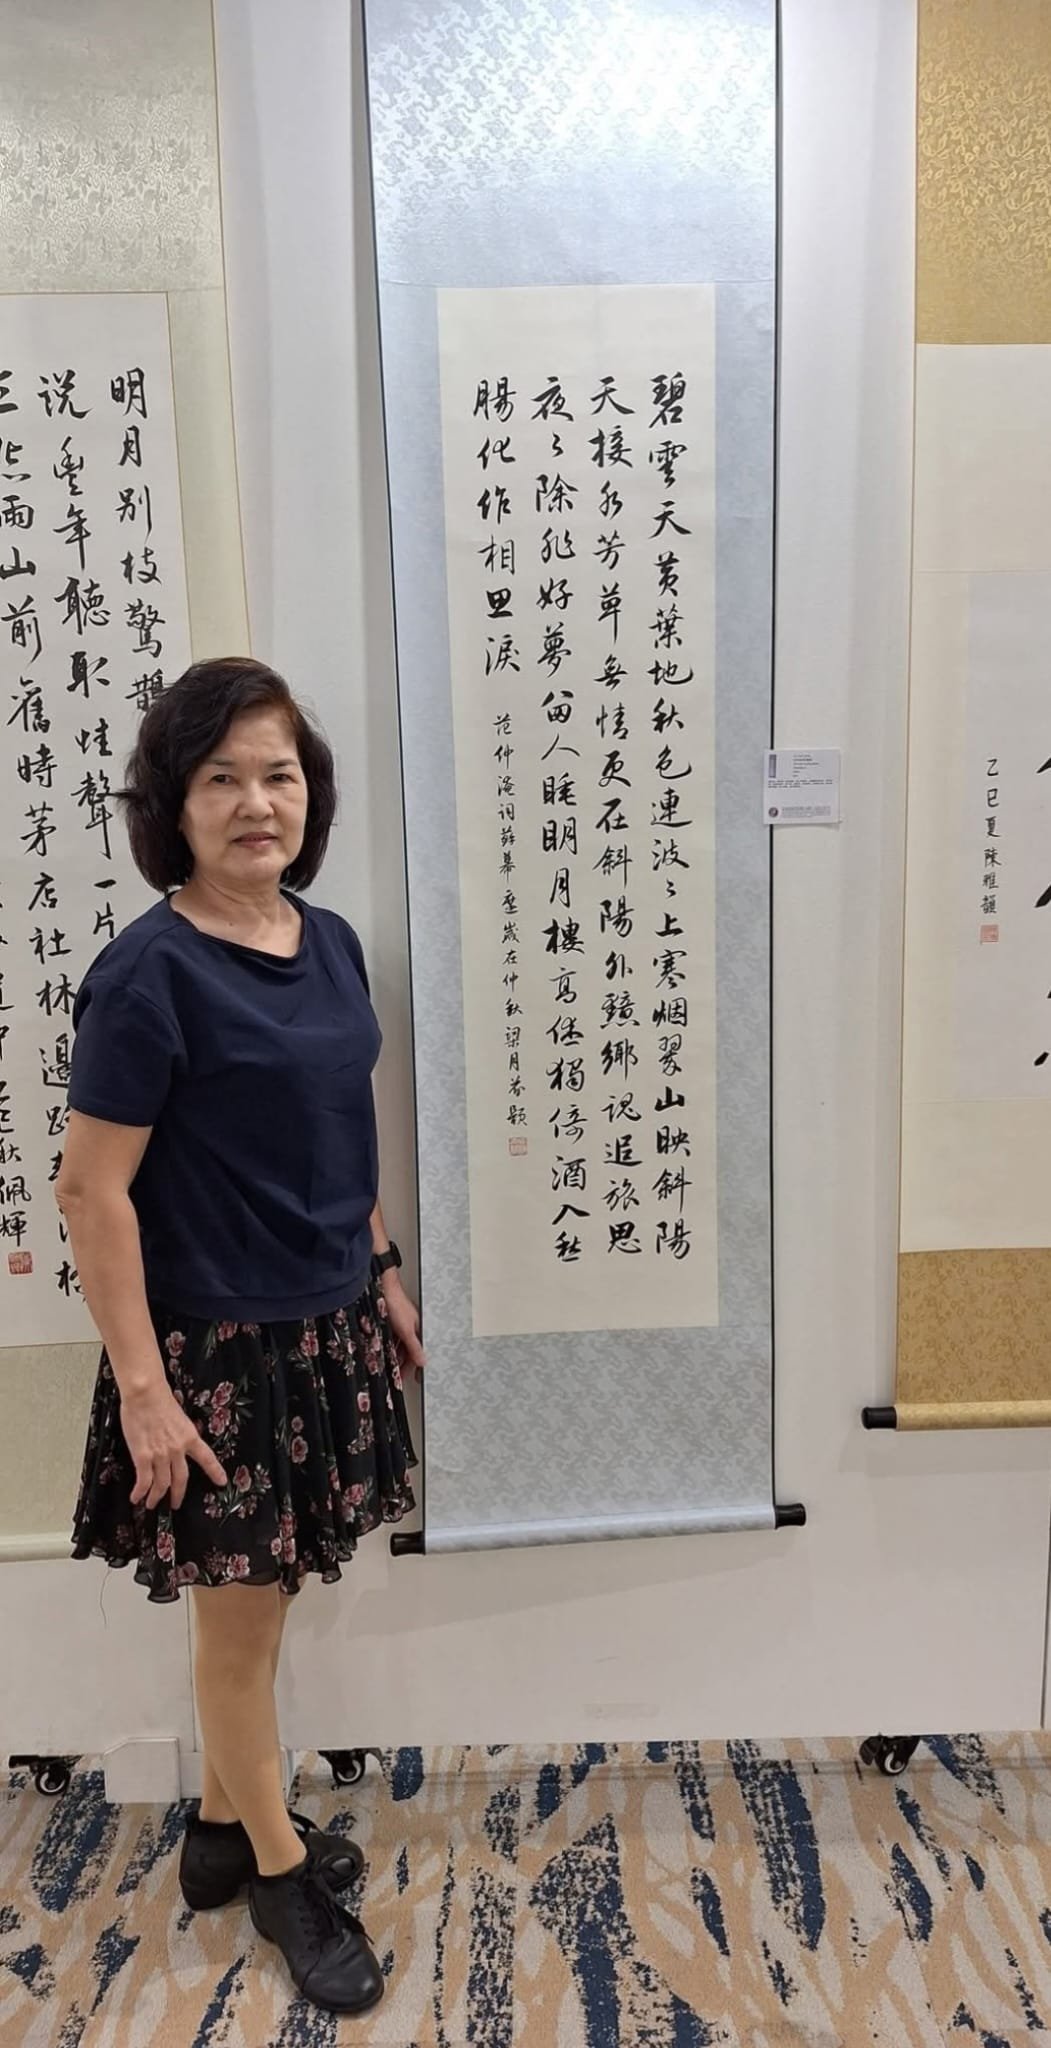 乙巳夏陳雅韻
碧雲天黄葉地秋色連波々上寒烟翠山映斜陽
天接水芳草無情更在斜陽外黯鄉魂追旅思
夜々除非好夢留人睡明月樓高休獨倚酒入愁
腸化作相思淚
范仲淹詞蘇幕遮歲在仲秋梁月芬題
明月别枝驚鵲
说豐年聽取蛙聲一片
雨山前舊時茅店社林邊路
秋佩輝